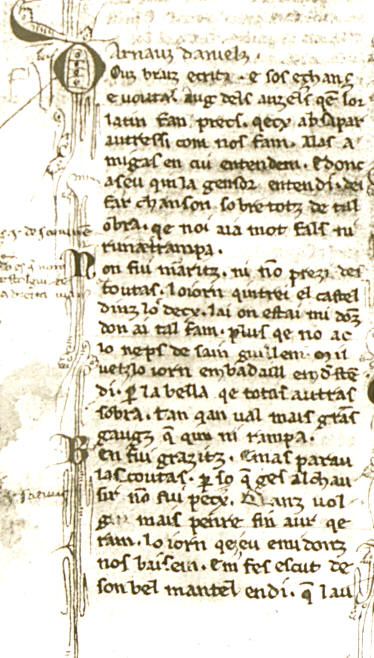 Arnauz daniels.
Douz braiz e critz. e sos e chanz
e voutas aug dels auzels qe lor
latin fan precs. qecx ab sa par
autressi com nos fam. Alas a
migas en cui entendem. E donc
a seu qin la gensor entendi. dei
far chanson sobre totz de tal
obra. qe noi aia mot fals. ni
rim estrampa.
Non fui maritz. ni no prezi des
toutas. lo iorn qintrei el castel
dinz lo decx. lai on estai mi donz
don ai tal fam. plus qe no ac
lo neps de sain guillem. Mil
vetz lo iorn en badaill em deste
di. per la bella qe totas autras
sobra. tan qan val mais grans
gaugz qe qun ni rampa.
Ben fui grazitz. e mas parau
las coutas. per so qe ges al chau
sir no fui pecx. Danz vol
gui mais penre fin aur qe
ram. lo iorn qez eu e mi donz
nos baisem. em fes escut de
son bel mantel endi. qe lau